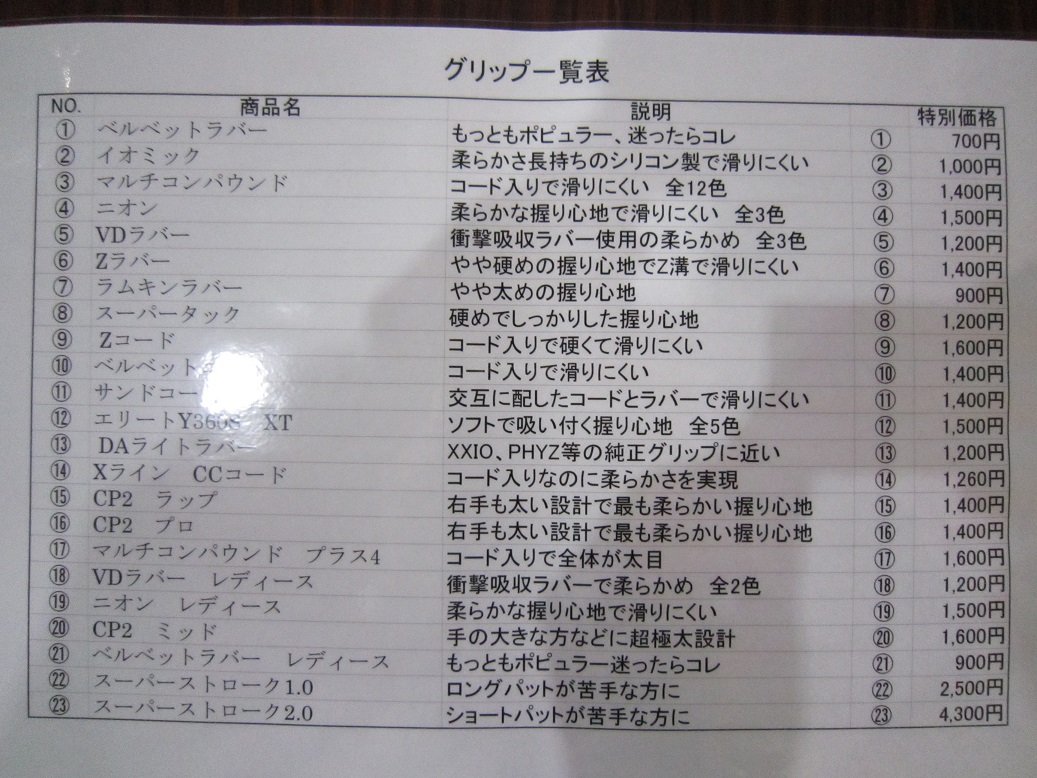 グリップ一覧表
NO. 商品名 説明 特別価格
① ベルベットラバー もっともポピュラー、迷ったらコレ ① 700円
② イオミック 柔らかさ長持ちのシリコン製で滑りにくい ② 1,000円
③ マルチコンパウンド コード入りで滑りにくい 全12色 ③ 1,400円
④ ニオン 柔らかな握り心地で滑りにくい 全3色 ④ 1,500円
⑤ VDラバー 衝撃吸収ラバー使用の柔らかめ 全3色 ⑤ 1,200円
⑥ Zラバー やや硬めの握り心地でZ溝で滑りにくい ⑥ 1,400円
⑦ ラムキンラバー やや太めの握り心地 ⑦ 900円
⑧ スーパータック 硬めでしっかりした握り心地 ⑧ 1,200円
⑨ Zコード コード入りで硬くて滑りにくい ⑨ 1,600円
⑩ ベルベット コード入りで滑りにくい ⑩ 1,400円
⑪ サンドコー 交互に配したコードとラバーで滑りにくい ⑪ 1,400円
⑫ エリートY360S XT ソフトで吸い付く握り心地 全5色 ⑫ 1,500円
⑬ DAライトラバー XXIO、PHYZ等の純正グリップに近い ⑬ 1,200円
⑭ Xライン CCコード コード入りなのに柔らかさを実現 ⑭ 1,260円
⑮ CP2 ラップ 右手も太い設計で最も柔らかい握り心地 ⑮ 1,400円
⑯ CP2 プロ 右手も太い設計で最も柔らかい握り心地 ⑯ 1,400円
⑰ マルチコンパウンド プラス4 コード入りで全体が太目 ⑰ 1,600円
⑱ VDラバー レディース 衝撃吸収ラバーで柔らかめ 全2色 ⑱ 1,200円
⑲ ニオン レディース 柔らかな握り心地で滑りにくい ⑲ 1,500円
⑳ CP2 ミッド 手の大きな方などに超極太設計 ⑳ 1,600円
㉑ ベルベットラバー レディース もっともポピュラー迷ったらコレ ㉑ 900円
㉒ スーパーストローク1.0 ロングパットが苦手な方に ㉒ 2,500円
㉓ スーパーストローク2.0 ショートパットが苦手な方に ㉓ 4,300円